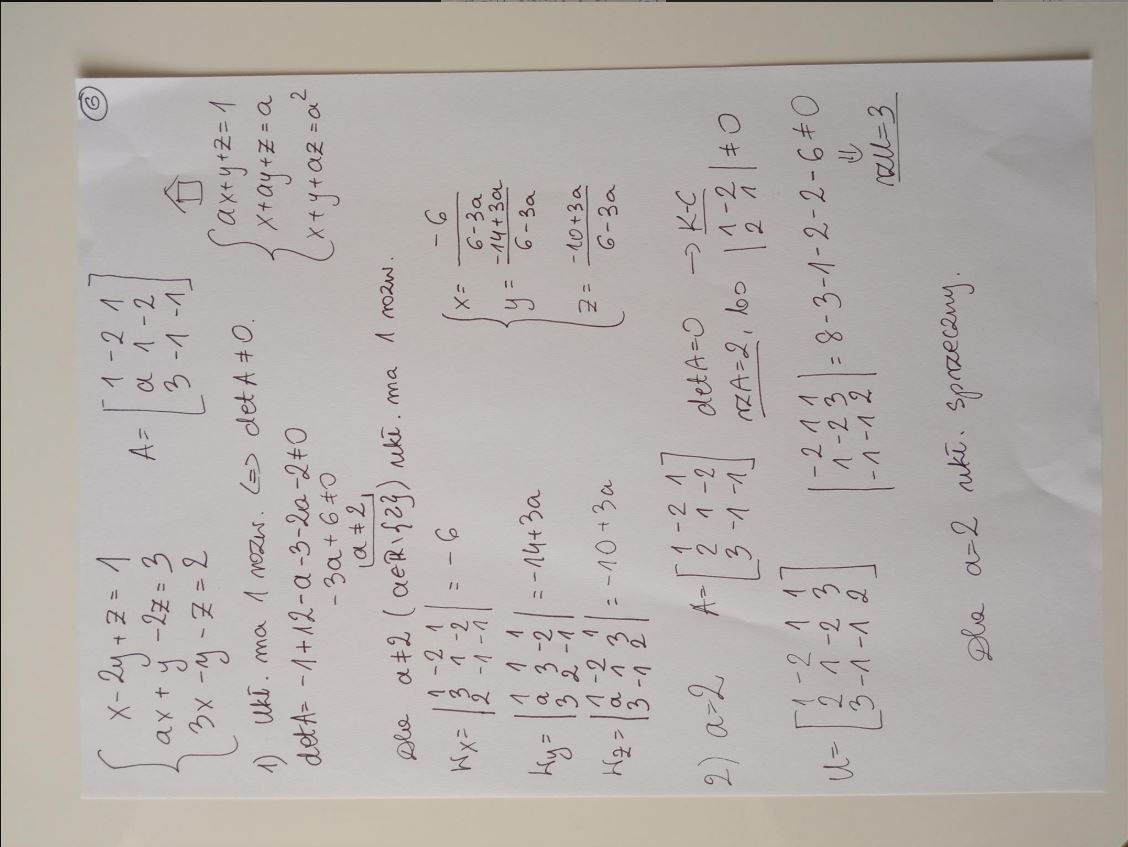 ⑥
x - 2y + z = 1
ax + y - 2z = 3
3x - y - z = 2
A = [1 -2 1
a 1 -2
3 -1 -1]
ax + y + z = 1
x + ay + z = a
x + y + az = a²
1) Ukł. ma 1 rozw. <=> det A ≠ 0.
det A = -1 + 12 - a - 3 - 2a - 2 ≠ 0
-3a + 6 ≠ 0
a ≠ 2
Dla a ≠ 2 (a ∈ ℝ \ {2}) ukł. ma 1 rozw.
Wx = |1 -2 1
3 1 -2
2 -1 -1| = -6
Wy = |1 1 1
a 3 -2
3 2 -1| = -14 + 3a
Wz = |1 -2 1
a 1 3
3 -1 2| = -10 + 3a
x = -6 / 6 - 3a
y = -14 + 3a / 6 - 3a
z = -10 + 3a / 6 - 3a
2) a = 2 A = [1 -2 1
2 1 -2
3 -1 -1]
det A = 0 → K-C
rzA = 2, bo |1 -2
2 1| ≠ 0
U = [1 -2 1 1
2 1 -2 3
3 -1 -1 2]
|-2 1 1
1 -2 3
-1 -1 2| = 8 - 3 - 1 - 2 - 2 - 6 ≠ 0
⇓
rzU = 3
Dla a = 2 ukł. sprzeczny.